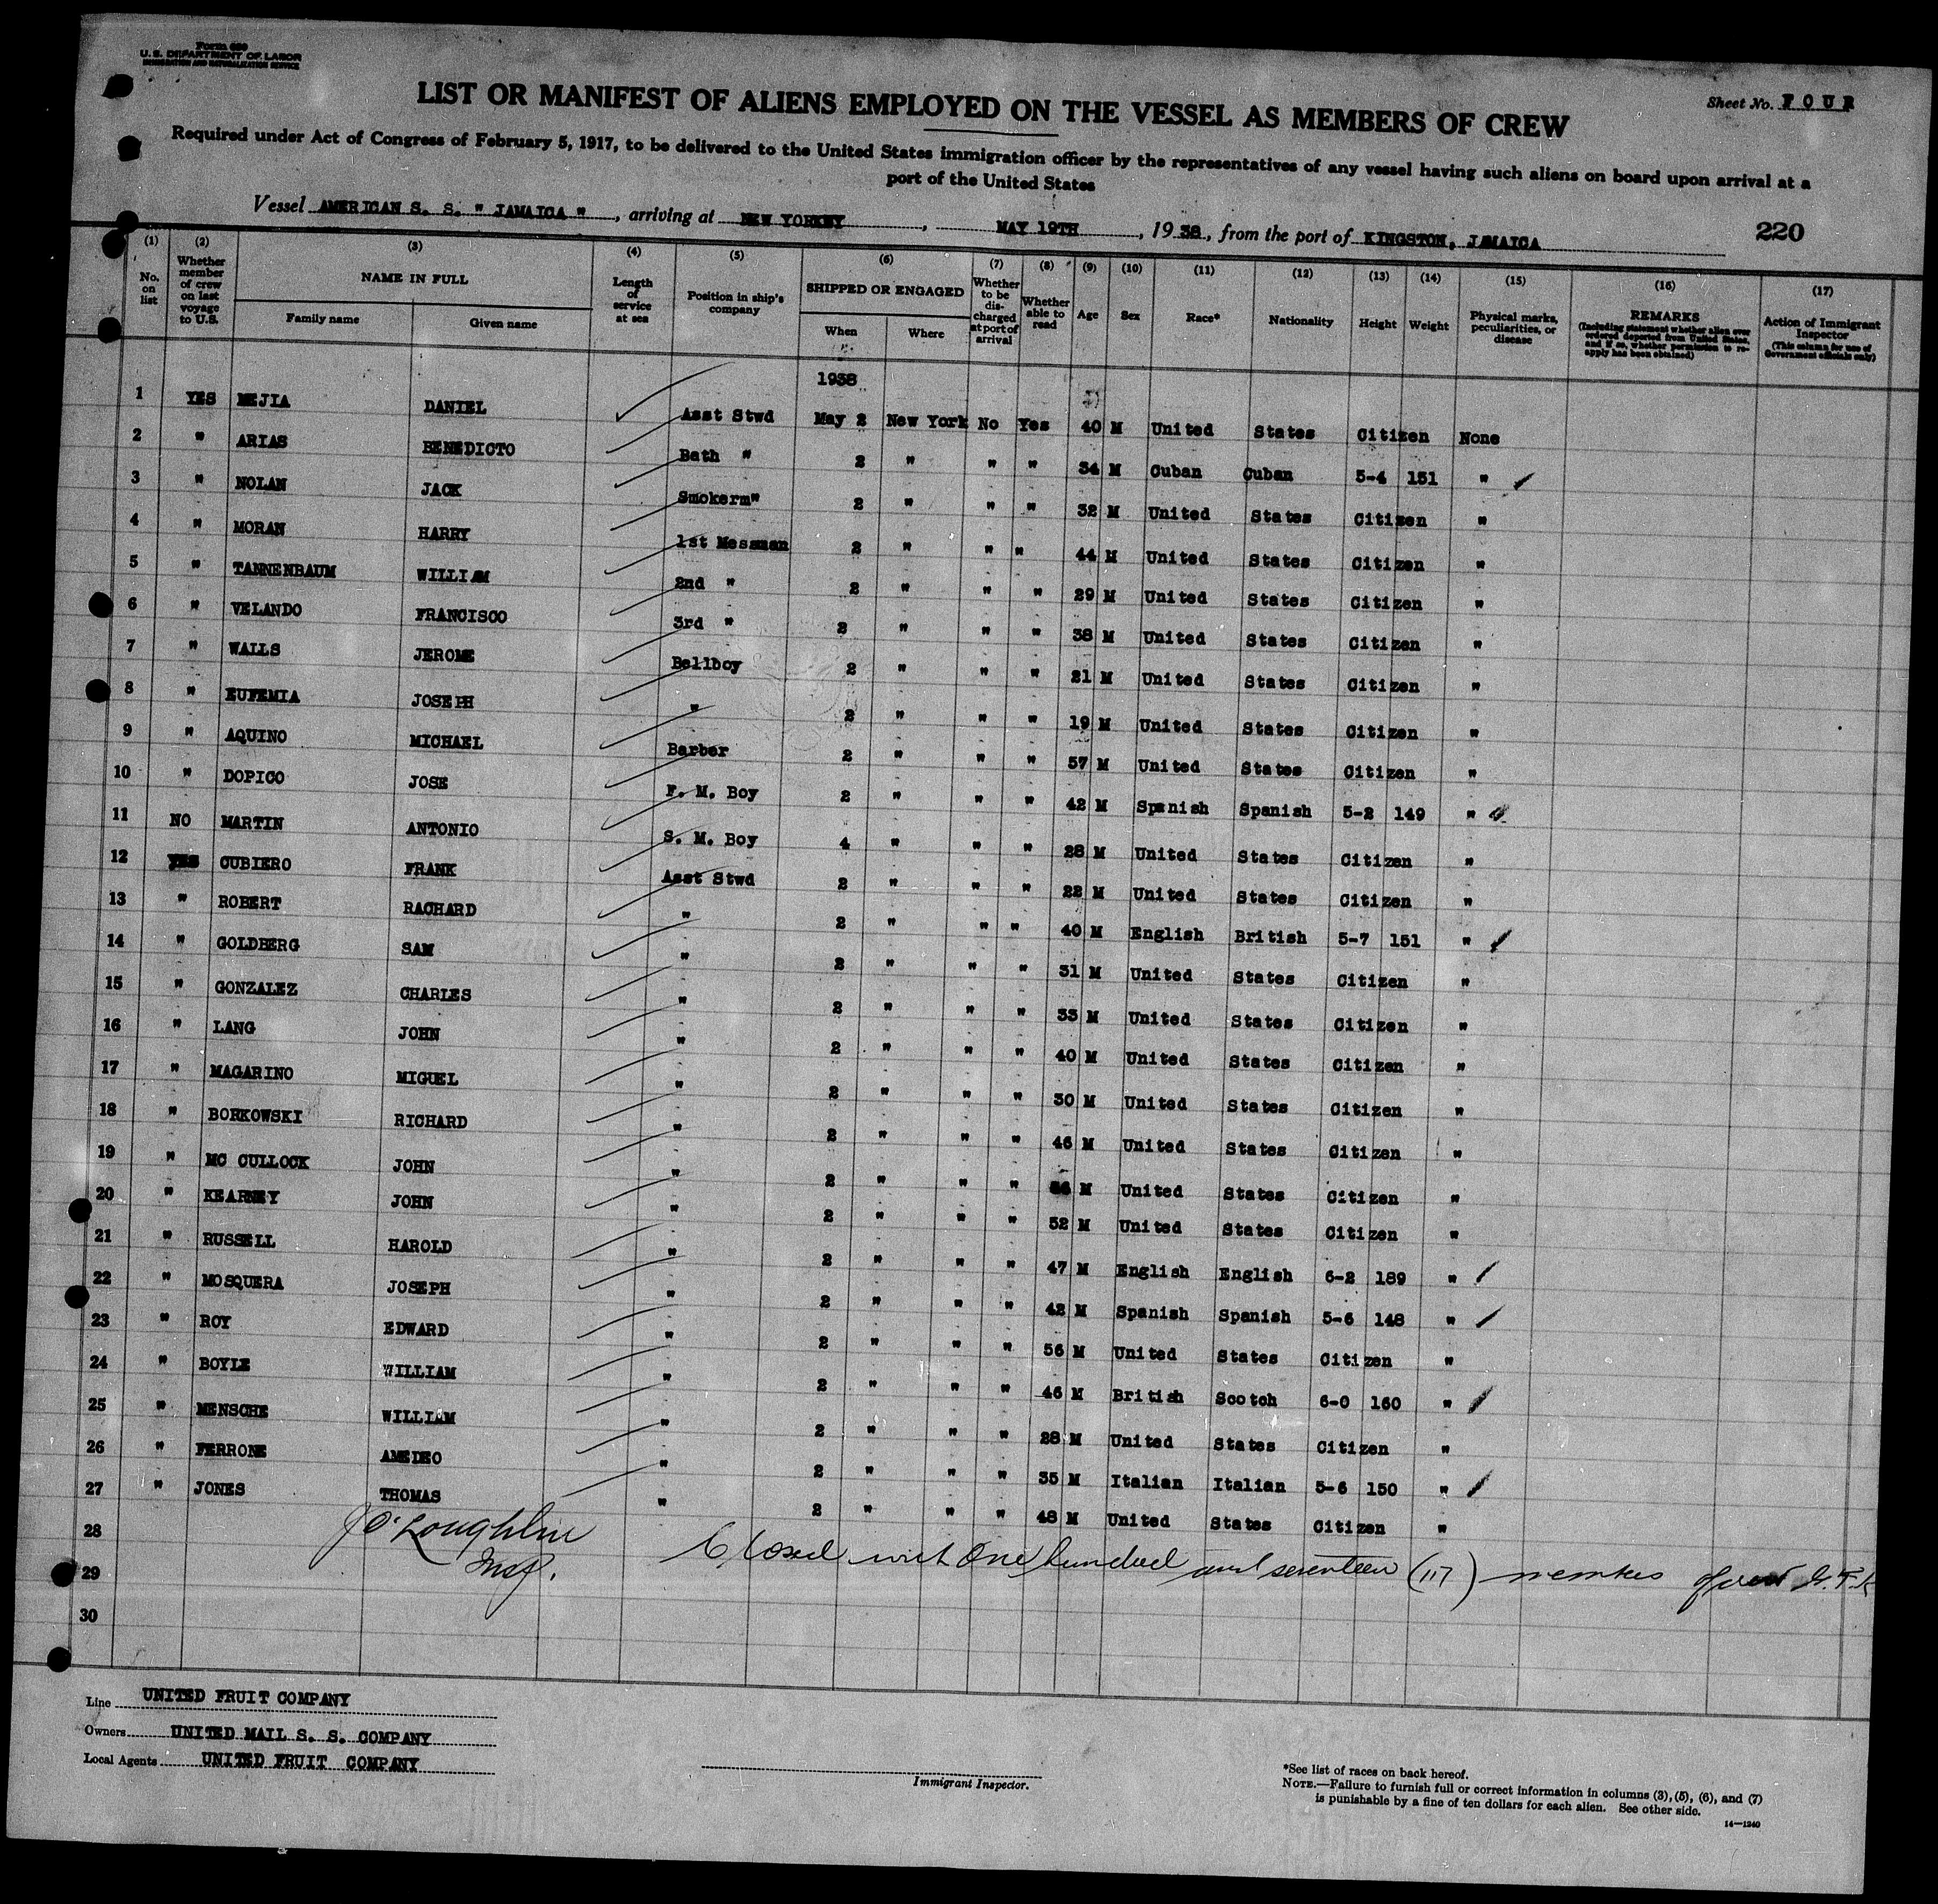 Form 680
U. S. DEPARTMENT OF LABOR
IMMIGRATION AND NATURALIZATION SERVICE
Sheet No. FOUR
LIST OR MANIFEST OF ALIENS EMPLOYED ON THE VESSEL AS MEMBERS OF CREW
Required under Act of Congress of February 5, 1917, to be delivered to the United States immigration officer by the representatives of any vessel having such aliens on board upon arrival at a
port of the United States
Vessel AMERICAN S. S. " JAMAICA ", arriving at NEW YORKNY, MAY 19TH, 1938, from the port of KINGSTON, JAMAICA 220
(1) (2) (3) (4) (5) (6) (7) (8) (9) (10) (11) (12) (13) (14) (15) (16) (17)
No. on list Whether member of crew on last voyage to U.S. NAME IN FULL Family name Given name Length of service at sea Position in ship's company SHIPPED OR ENGAGED When Where Whether to be discharged at port of arrival Whether able to read Age Sex Race* Nationality Height Weight Physical marks, peculiarities, or disease REMARKS (Including statement whether alien ever ordered deported from United States, and if so, whether permission to re-apply has been obtained) Action of Immigrant Inspector (This column for use of Government officials only)
1938
1 YES MEJIA DANIEL Asst Stwd May 2 New York No Yes 40 M United States Citizen None
2 " ARIAS BENEDICTO Bath " 2 " " " 34 M Cuban Cuban 5-4 151 "
3 " NOLAN JACK Smokerm" 2 " " " 32 M United States Citizen "
4 " MORAN HARRY 1st Messman 2 " " " 44 M United States Citizen "
5 " TANNENBAUM WILLIAM 2nd " 2 " " " 29 M United States Citizen "
6 " VELANDO FRANCISCO 3rd " 2 " " " 38 M United States Citizen "
7 " WALLS JEROME Bellboy 2 " " " 21 M United States Citizen "
8 " EUFEMIA JOSEPH " 2 " " " 19 M United States Citizen "
9 " AQUINO MICHAEL Barber 2 " " " 57 M United States Citizen "
10 " DOPICO JOSE F. M. Boy 2 " " " 42 M Spanish Spanish 5-2 149 "
11 NO MARTIN ANTONIO S. M. Boy 4 " " " 28 M United States Citizen "
12 YES CUBIERO FRANK Asst Stwd 2 " " " 22 M United States Citizen "
13 " ROBERT RACHARD " 2 " " " 40 M English British 5-7 151 "
14 " GOLDBERG SAM " 2 " " " 31 M United States Citizen "
15 " GONZALEZ CHARLES " 2 " " " 33 M United States Citizen "
16 " LANG JOHN " 2 " " " 40 M United States Citizen "
17 " MAGARINO MIGUEL " 2 " " " 30 M United States Citizen "
18 " BORKOWSKI RICHARD " 2 " " " 46 M United States Citizen "
19 " MC CULLOCK JOHN " 2 " " " M United States Citizen "
20 " KEARNEY JOHN " 2 " " " 52 M United States Citizen "
21 " RUSSELL HAROLD " 2 " " " 47 M English English 6-2 189 "
22 " MOSQUERA JOSEPH " 2 " " " 42 M Spanish Spanish 5-6 148 "
23 " ROY EDWARD " 2 " " " 56 M United States Citizen "
24 " BOYLE WILLIAM " 2 " " " 46 M British Scotch 6-0 160 "
25 " MENSCHE WILLIAM " 2 " " " 28 M United States Citizen "
26 " FERRONE AMEDEO " 2 " " " 35 M Italian Italian 5-6 150 "
27 " JONES THOMAS " 2 " " " 48 M United States Citizen "
28 J O'Loughlin
29 Insp. Closed with One hundred and seventeen (117) members of crew
30
Line UNITED FRUIT COMPANY
Owners UNITED MAIL S. S. COMPANY
Local Agents UNITED FRUIT COMPANY
Immigrant Inspector.
*See list of races on back hereof.
NOTE.—Failure to furnish full or correct information in columns (3), (5), (6), and (7)
is punishable by a fine of ten dollars for each alien. See other side.
14—1240